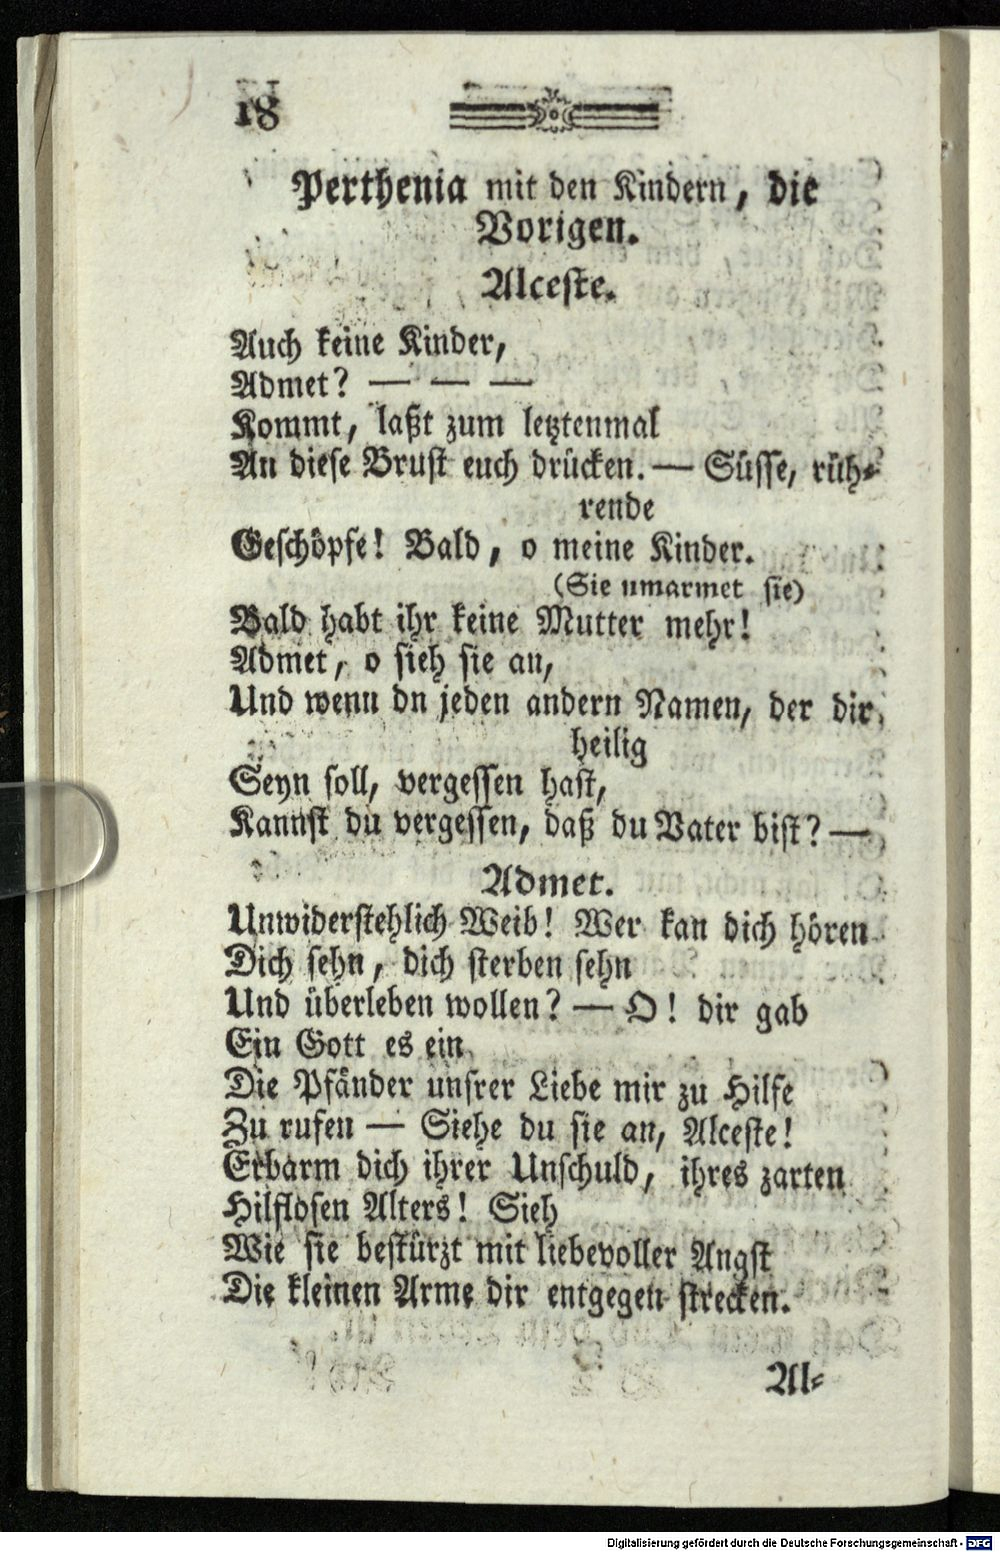 18
Perthenia mit den Kindern, die
Vorigen.
Alceste.
Auch keine Kinder,
Admet? — — —
Kommt, laßt zum letztenmal
An diese Brust euch drücken. — Süsse, rüh-
rende
Geschöpfe! Bald, o meine Kinder.
(Sie umarmet sie)
Bald habt ihr keine Mutter mehr!
Admet, o sieh sie an,
Und wenn dn jeden andern Namen, der dir
heilig
Seyn soll, vergessen hast,
Kannst du vergessen, daß du Vater bist? —
Admet.
Unwiderstehlich Weib! Wer kan dich hören
Dich sehn, dich sterben sehn
Und überleben wollen? — O! dir gab
Ein Gott es ein
Die Pfänder unsrer Liebe mir zu Hilfe
Zu rufen — Siehe du sie an, Alceste!
Erbarm dich ihrer Unschuld, ihres zarten
Hilflosen Alters! Sieh
Wie sie bestürzt mit liebevoller Angst
Die kleinen Arme dir entgegen strecken.
Al-
Digitalisierung gefördert durch die Deutsche Forschungsgemeinschaft - DFG